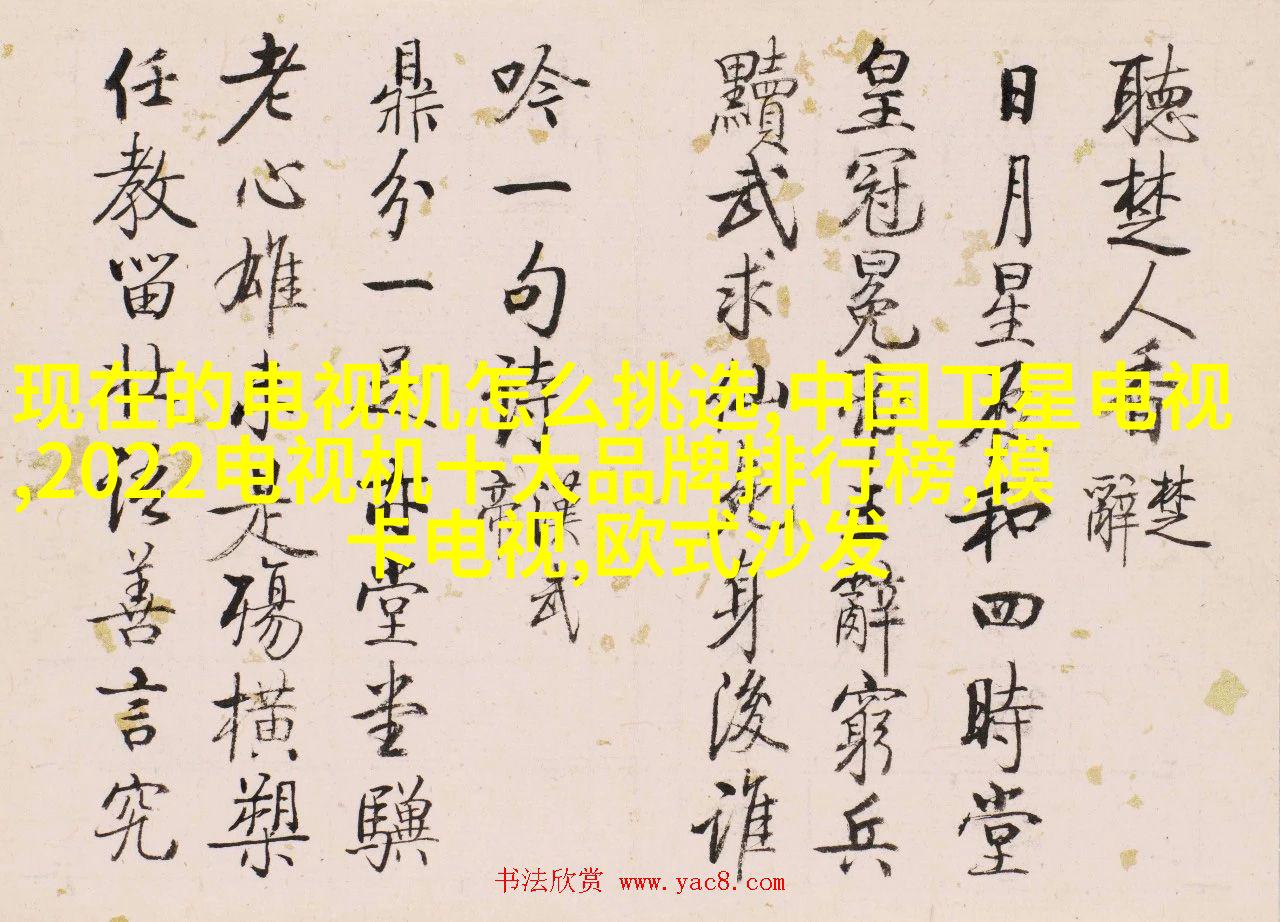 聽楚人 楚辭
日月星 和四時堂
皇冠冕 辭窮兵
黷武求仙 身後誰
吟一句詩 漢武帝
鼎分一 堂堂驥
老心雄 橫槊
任教留 善言究
现在的电视机怎么挑选,中国卫星电视
,2022电视机十大品牌排行榜,模
卡电视,欧式沙发
书法欣赏 www.yac8.com